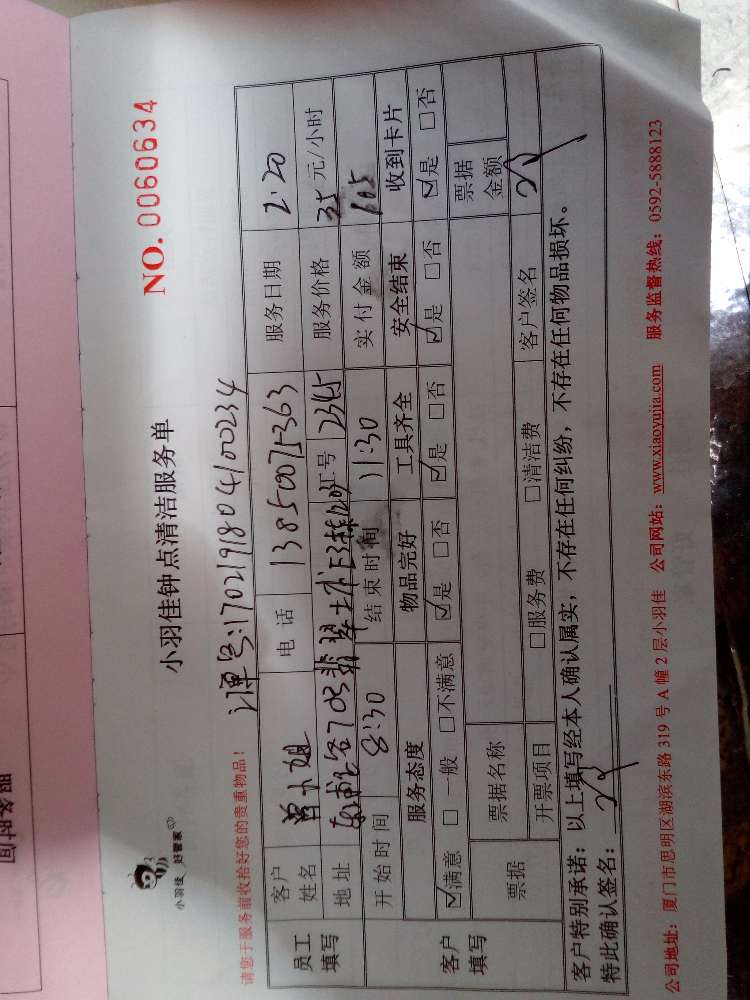 小羽佳 好管家
小羽佳钟点清洁服务单
NO. 0060634
请您于服务前收拾好您的贵重物品！
订单号:1702191804100234
员工填写
客户姓名 曾小姐 电话 服务日期 2.20
地址 工号 2345 服务价格 35 元/小时
开始时间 8:30 结束时间 11:30 实付金额 105
客户填写
服务态度 物品完好 工具齐全 安全结束 收到卡片
☑满意 □一般 □不满意 ☑是 □否 ☑是 □否 ☑是 □否 ☑是 □否
票据 票据名称 票据金额
开票项目 □服务费 □清洁费 客户签名
客户特别承诺：以上填写经本人确认属实，不存在任何纠纷，不存在任何物品损坏。
特此确认签名：
公司地址：厦门市思明区湖滨东路 319 号 A 幢 2 层小羽佳 公司网站：www.xiaoyujia.com 服务监督热线：0592-5888123
服务时间